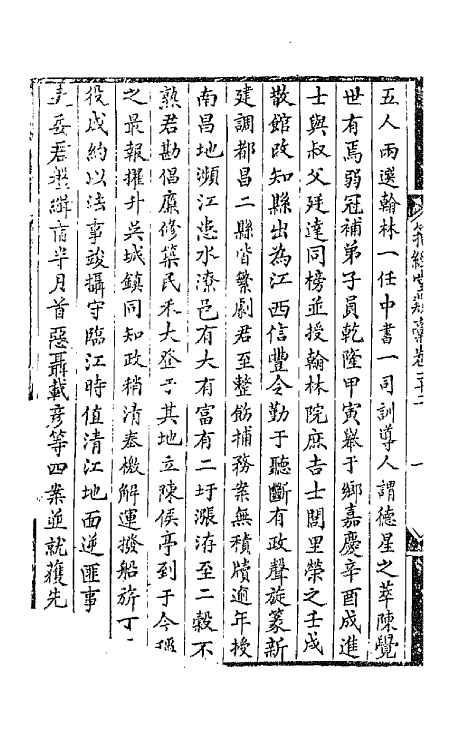 五人兩選翰林一任中書一司訓導人謂德星之萃陳覺
世有焉弱冠補弟子員乾隆甲寅舉于鄉嘉慶辛酉成進
士與叔父廷達同榜並授翰林院庶吉士閭里榮之壬戌
散館改知縣出為江西信豐令勤于聽斷有政聲旋篆新
建調都昌二縣皆繁劇君至整飭捕務案無積牘逾年授
南昌地瀕江患水潦邑有大有富有二圩漲洊至二穀不
熟君勘倡廉修築民禾大登于其地立陳侯亭到于今
之最報擢升吳城鎮同知政稍清奉檄解運撥船旂丁
役成約以法事竣攝守臨江時值清江地面逆匪事
委君半月首惡聶載彦等四案並就獲先
卷二十二
一